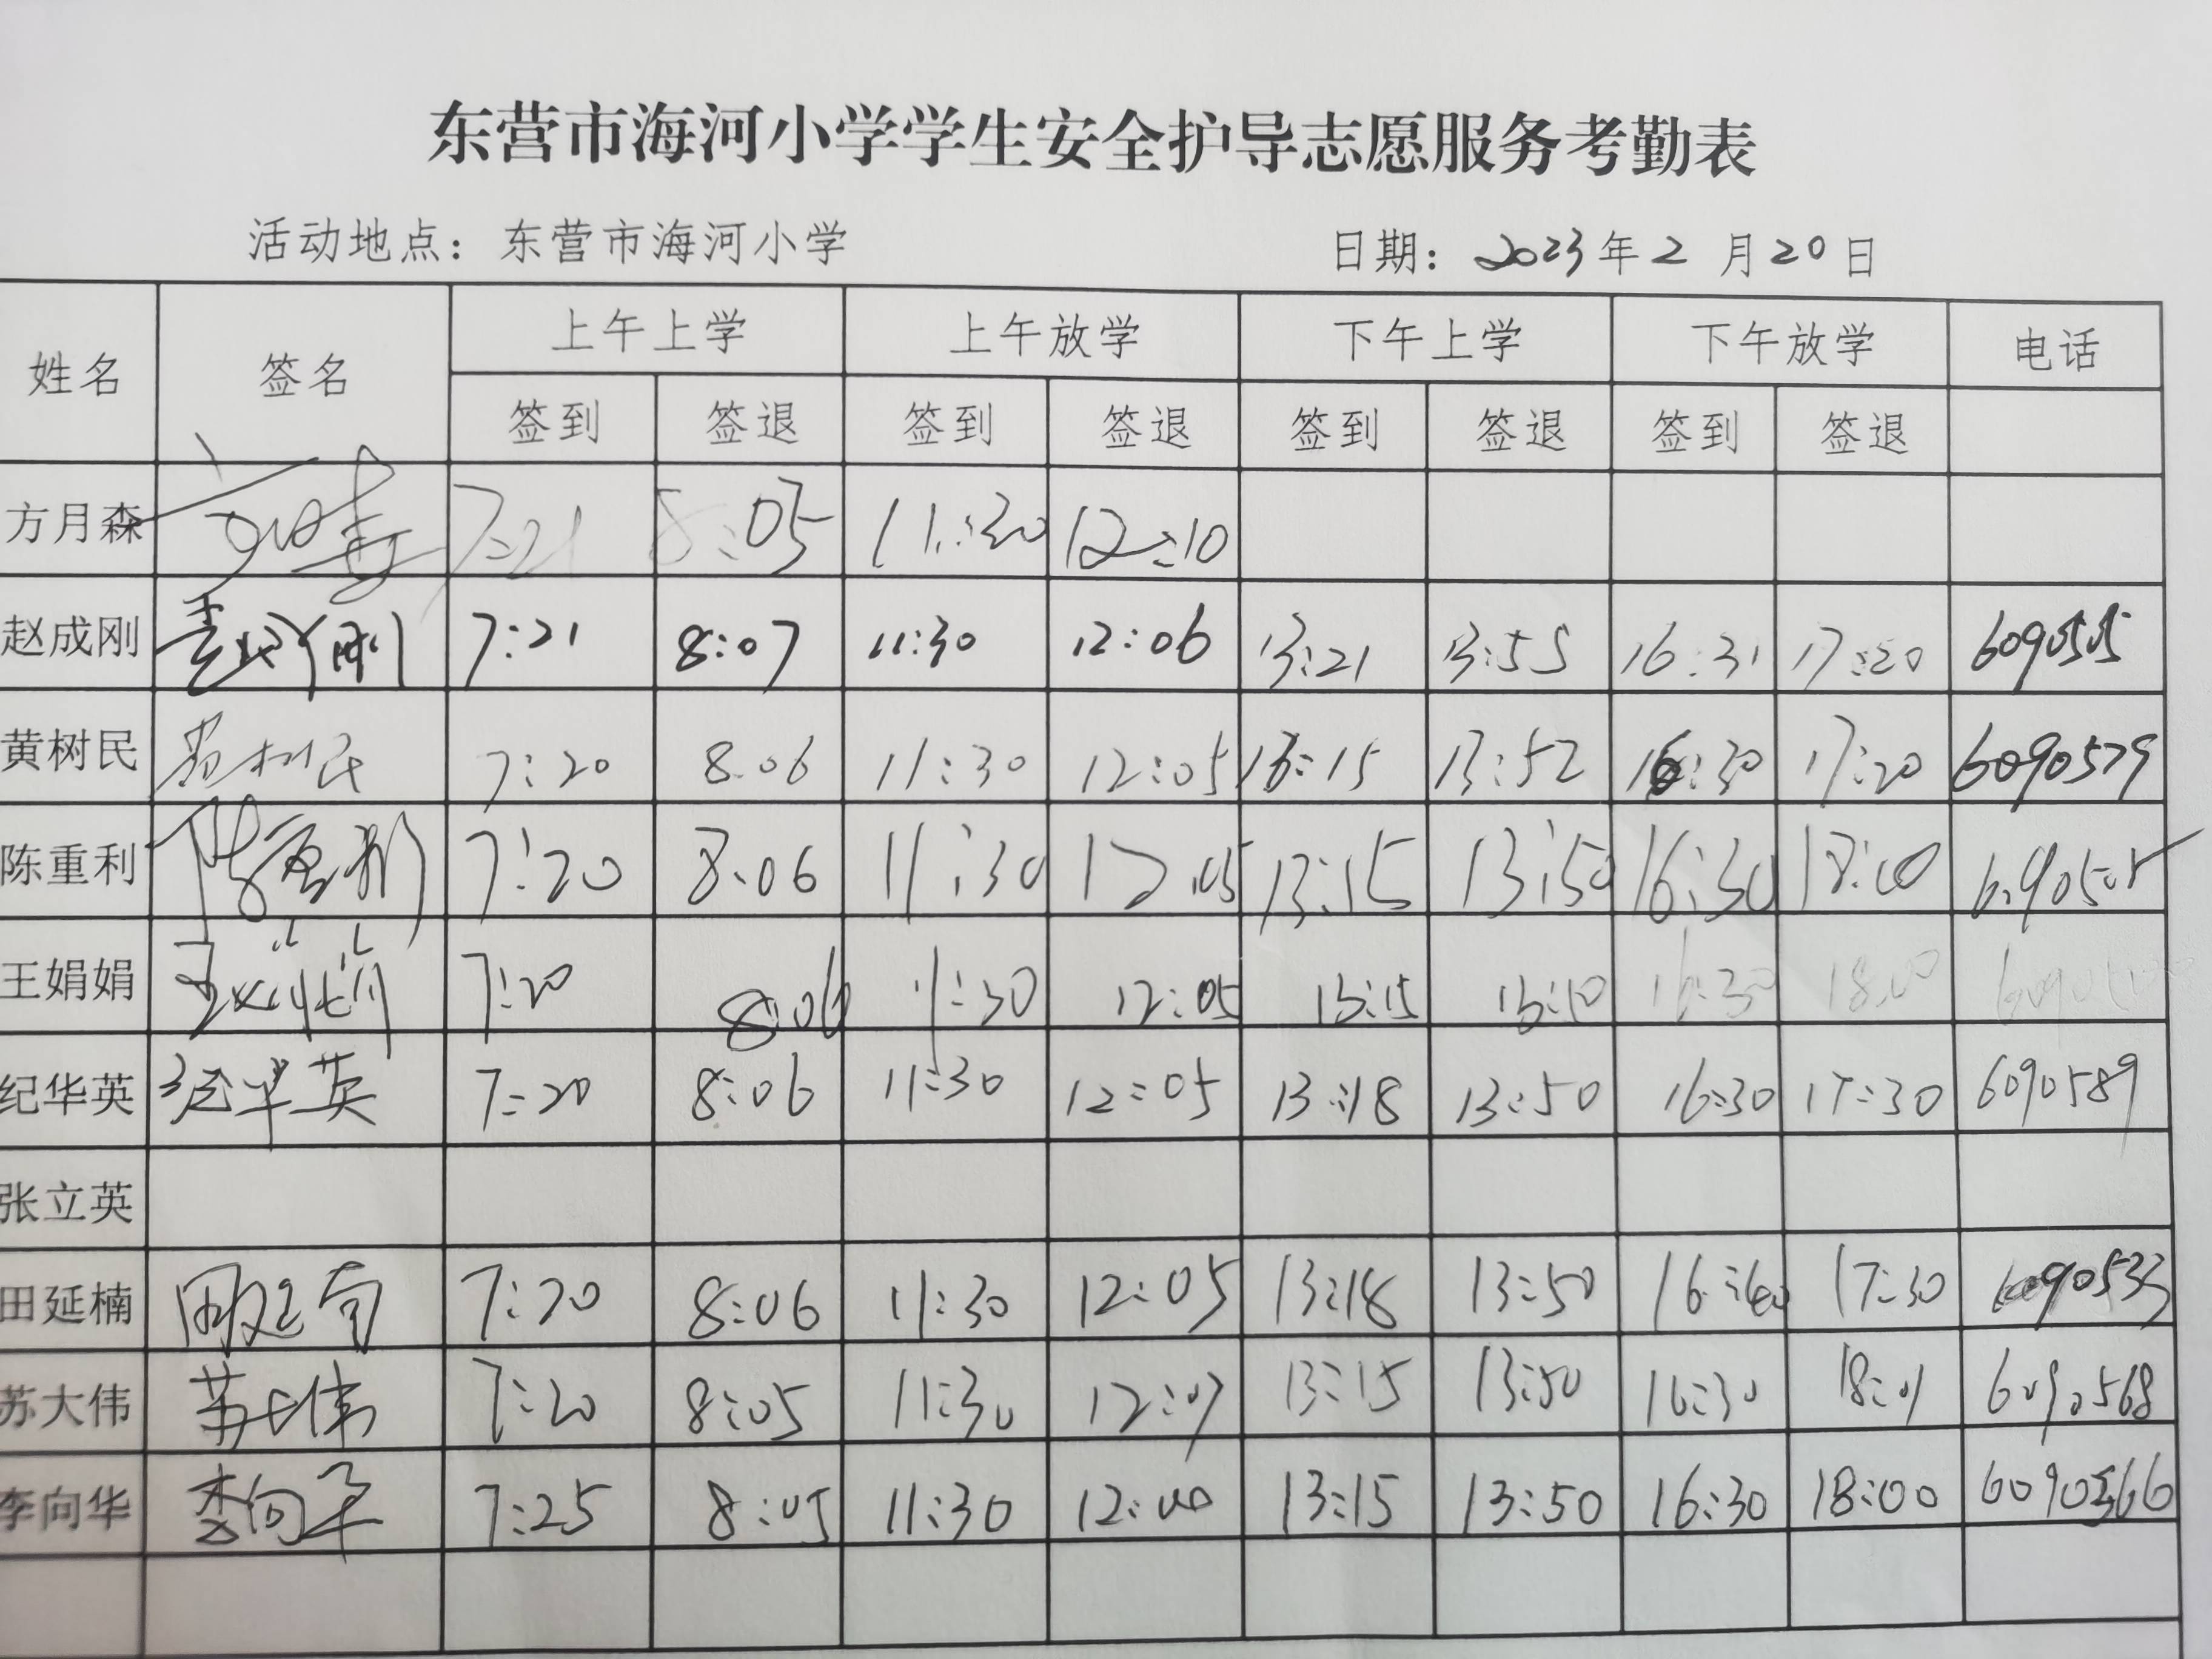 东营市海河小学学生安全护导志愿服务考勤表
活动地点：东营市海河小学 日期：2023年2月20日
姓名 签名 上午上学 上午放学 下午上学 下午放学 电话
签到 签退 签到 签退 签到 签退 签到 签退
方月森 7:21 8:05 11:30 12:10
赵成刚 赵成刚 7:21 8:07 11:30 12:06 13:21 13:55 16:31 17:20
黄树民 黄树民 7:20 8:06 11:30 12:05 13:15 13:52 16:30 17:20 6090579
陈重利 陈重利 7:20 8:06 11:30 12:05 13:15 13:50 16:30 18:00
王娟娟 王娟娟 7:20 8:06 11:30 12:05 13:15 16:30 18:00
纪华英 纪华英 7:20 8:06 11:30 12:05 13:18 13:50 16:30 17:30 6090589
张立英
田延楠 田延楠 7:20 8:06 11:30 12:05 13:18 13:50 17:30 6090533
苏大伟 苏大伟 7:20 8:05 11:30 12:07 13:15 13:50 16:30 18:01 6090568
李向华 李向华 7:25 8:05 11:30 12:00 13:15 13:50 16:30 18:00 6090566